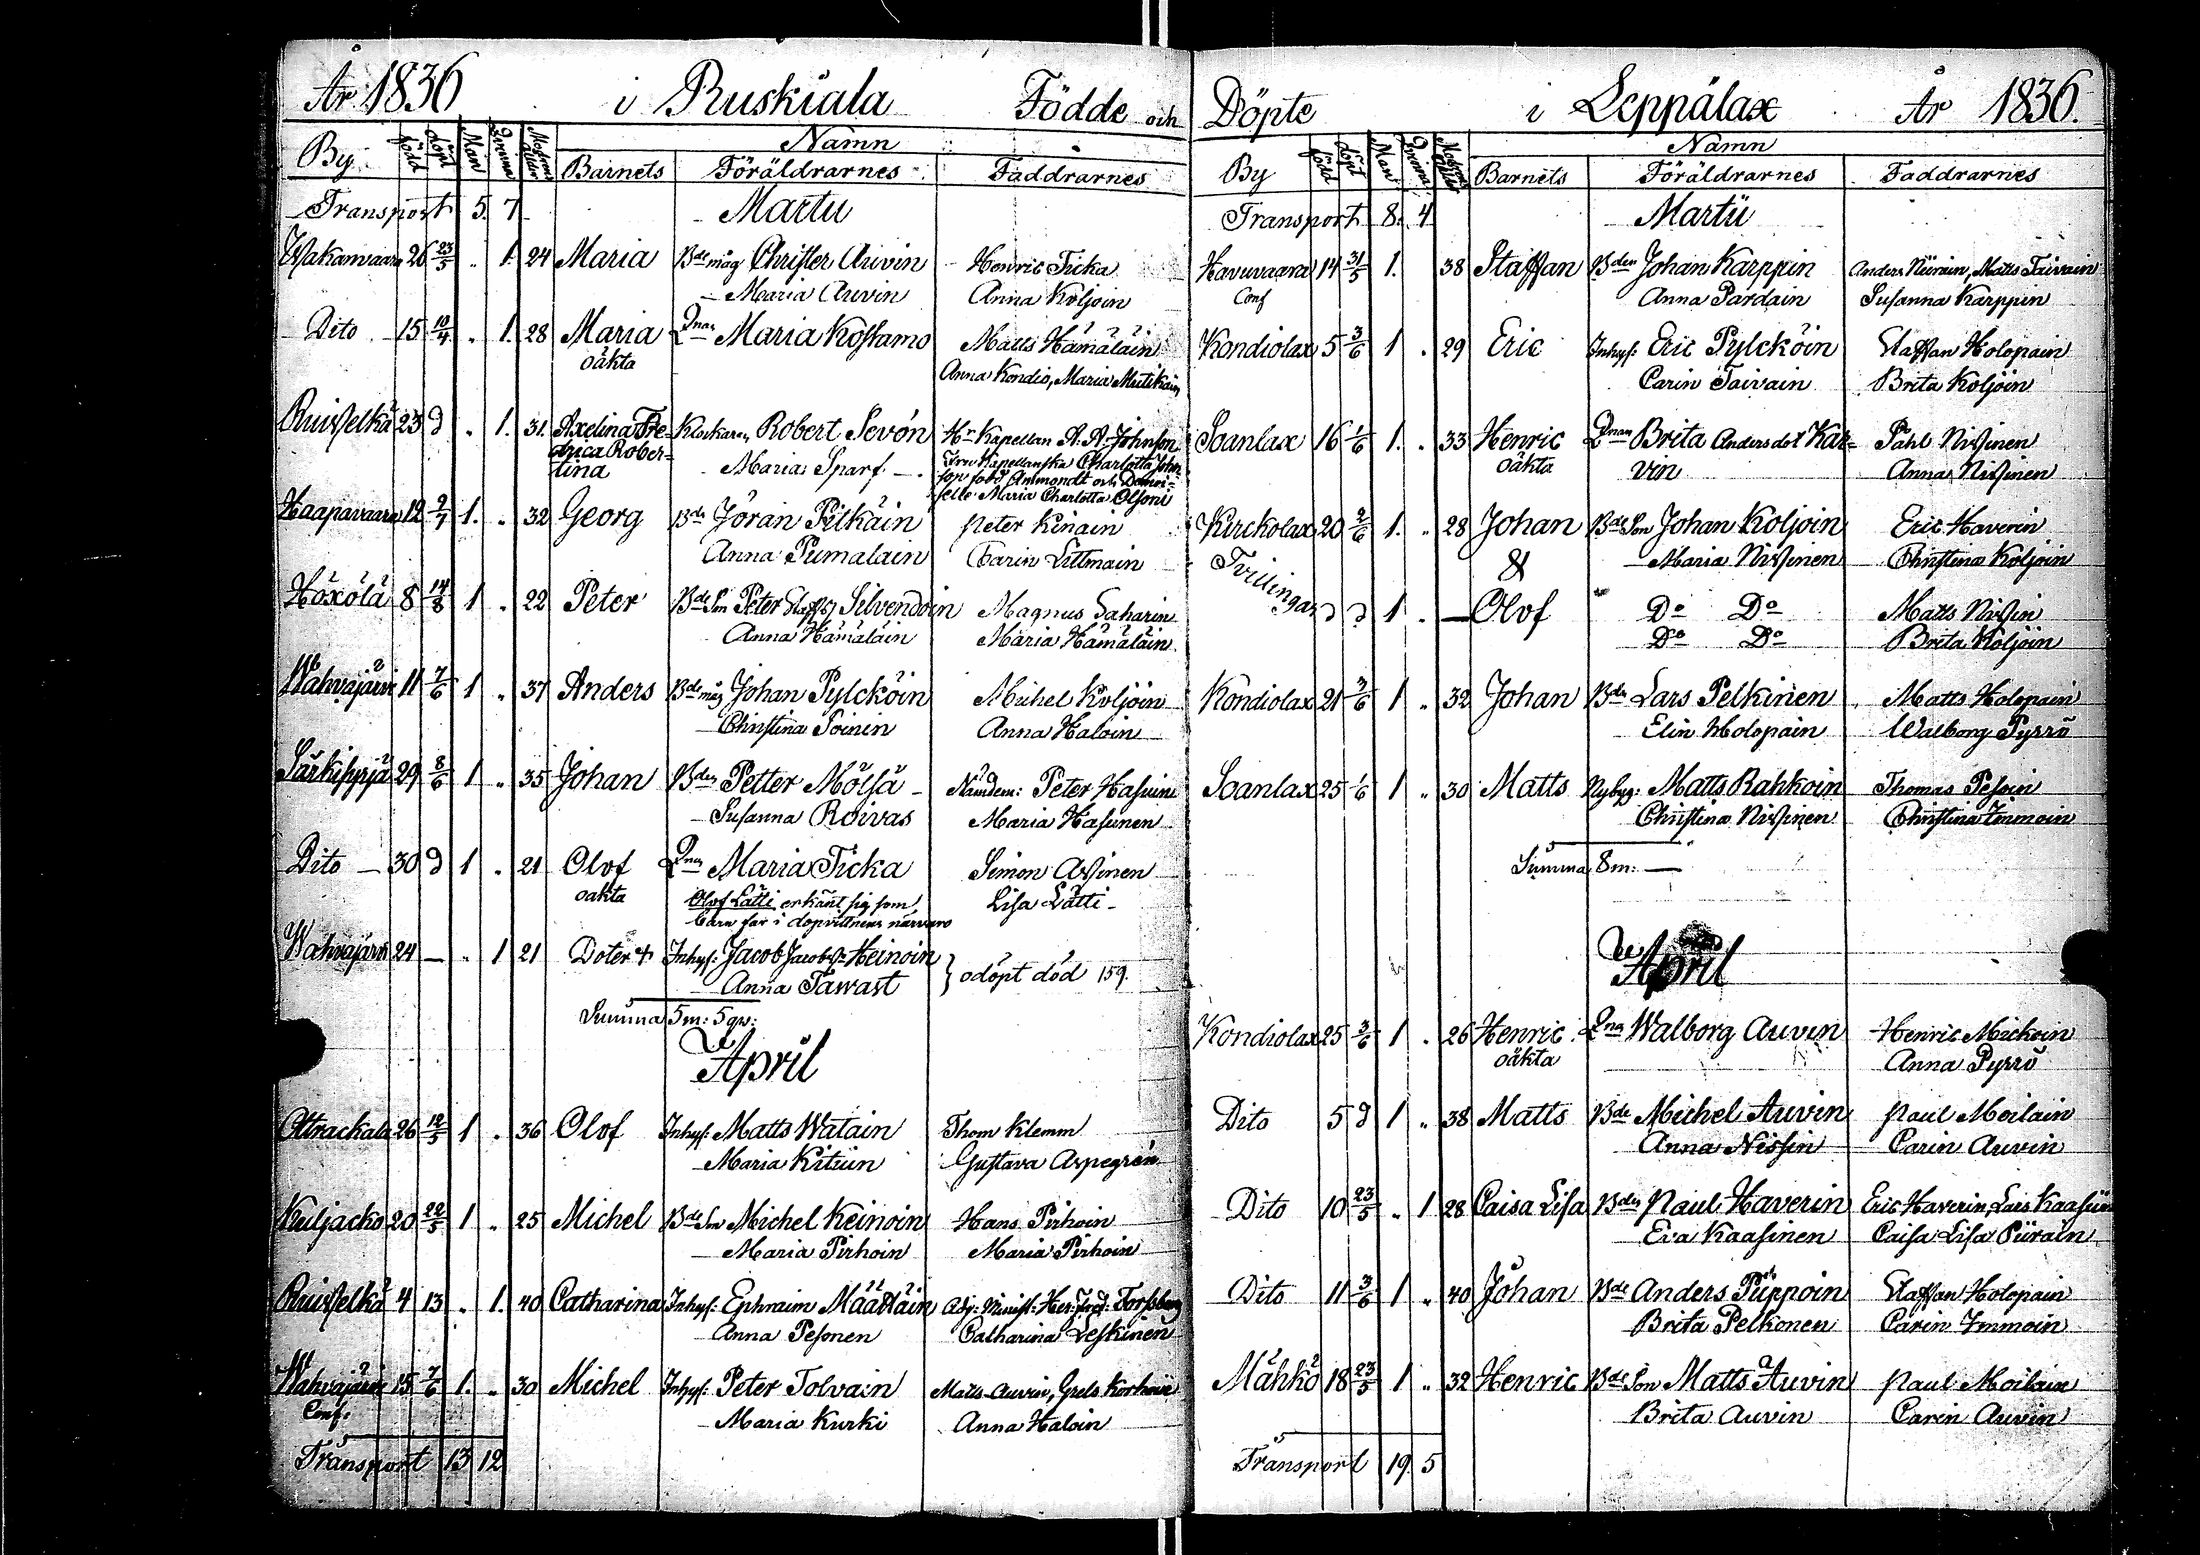 År 1836 i Ruskiala Födde och
By född döpt Man Qvinna Modrens ålder Namn
Barnets Föräldrarnes Faddrarnes
Transport 5. 7 Martii
Wakanvaara 26 23/5 " 1. 24 Maria Bde måg Christer Auvin Henric Ticka
Maria Auvin Anna Koljoin
Dito 15 10/4 " 1. 28 Maria Qnas Maria Kostamo Matts Hämäläin
oäkta Anna Kondio, Maria Mutikain
Ruisselkä 23 d " 1. 31. Axelina Fre- Klockaren Robert Sevón Hr Kapellan A. A. Johnson
drica Rober= Maria Sparf Fru Kapellanska Charlotta John
tina son född Ammondt och Demoi=
selle Maria Charlotta Olsoni
Haapavaara 12 2/7 1. " 32 Georg Bdn Jöran Pilkäin Peter Kinain
Anna Pumalain Carin Littmain
Höxölä 8 14/8 1 " 22 Peter Bde Son Peter Staffss Silvendoin Magnus Saharin
Anna Hämäläin Maria Hämäläin
Wahvajärvi 11 7/6 1 " 37 Anders Bde måg Johan Pylcköin Michel Koljoin
Christina Soinin Anna Haloin
Särkisyrjä 29 8/6 1 " 35 Johan Bden Petter Mölsä Nämdem: Peter Hasuinen
Susanna Roivas Maria Hasunen
Dito 30 d 1 " 21 Olof Qnas Maria Ticka Simon Assinen
oäkta Olof Lätti erkänt sig som Lisa Lätti
barn far i dopvittnens närvaro
Wahvajärvi 24 — " 1 21 Doter + Inhys: Jacob Jacobss Heinoin
Anna Tawast } odöpt död 159.
Summa 5 m: 5 qv:
April
Otrackala 26 12/5 1 " 36 Olof Inhys: Matts Watain Thom Klemm
Maria Kitiin Gustava Aspegrén
Kuljacko 20 22/5 1 " 25 Michel Bde Son Michel Keinoin Hans Pirhoin
Maria Pirhoin Maria Pirhoin
Ruisselkä 4 13 " 1. 40 Catharina Inhys: Ephraim Määttäin Adj: Minist: Hen: Fred: Forssberg
Anna Pesonen Catharina Leskinen
Wahvajärvi 15 7/6 1. " 30 Michel Inhys: Peter Tolvain Matts Auvin, Grels Korhoin
Conf: Maria Kurki Anna Haloin
Transport 13 12
Döpte i Leppälax År 1836.
By född döpt Man Qvinna Modrens ålder Namn
Barnets Föräldrarnes Faddrarnes
Transport 8. 4 Martii
Havuvaara 14 31/5 1. 38 Staffan Bden Johan Karppin Anders Niirain, Matts Taivain
Conf Anna Pardain Susanna Karppin
Kondiolax 5 3/6 1 " 29 Eric Inhys: Eric Pylcköin Staffan Holopain
Carin Taivain Brita Koljoin
Soanlax 16 1/6 1. " 33 Henric Qnan Brita Andersdot Kar= Påhl Nissinen
oäkta vin Anna Nissinen
Kirckolax 20 2/6 1. " 28 Johan Bde Son Johan Koljoin Eric Haverin
Tvillingar & Maria Nissinen Christina Koljoin
d d 1 " — Olof Do Do Matts Nissin
Do Do Brita Koljoin
Kondiolax 21 3/6 1 " 32 Johan Bdn Lars Pelkinen Matts Holopain
Elin Holopain Walborg Pyrrö
Soanlax 25 1/6 1 " 30 Matts Nybyg: Matts Rahkoin Thomas Pesoin
Christina Nissinen Christina Immoin
Summa 8 m: —
April
Kondiolax 25 3/6 1 " 26 Henric Qna Walborg Auvin Henric Mickoin
oäkta Anna Pyrrö
Dito 5 d 1 " 38 Matts Bde Michel Auvin Paul Moilain
Anna Nissin Carin Auvin
Dito 10 23/5 " 1 28 Caisa Lisa Bden Paul Haverin Eric Haverin, Lars Kaasiin
Eva Kaasinen Caisa Lisa Piirain
Dito 11 3/6 1 " 40 Johan Bde Anders Puppoin Staffan Holopain
Brita Pelkonen Carin Immoin
Mähkö 18 23/5 1 " 32 Henric Bde Son Matts Auvin Paul Moilain
Brita Auvin Carin Auvin
Transport 19 5